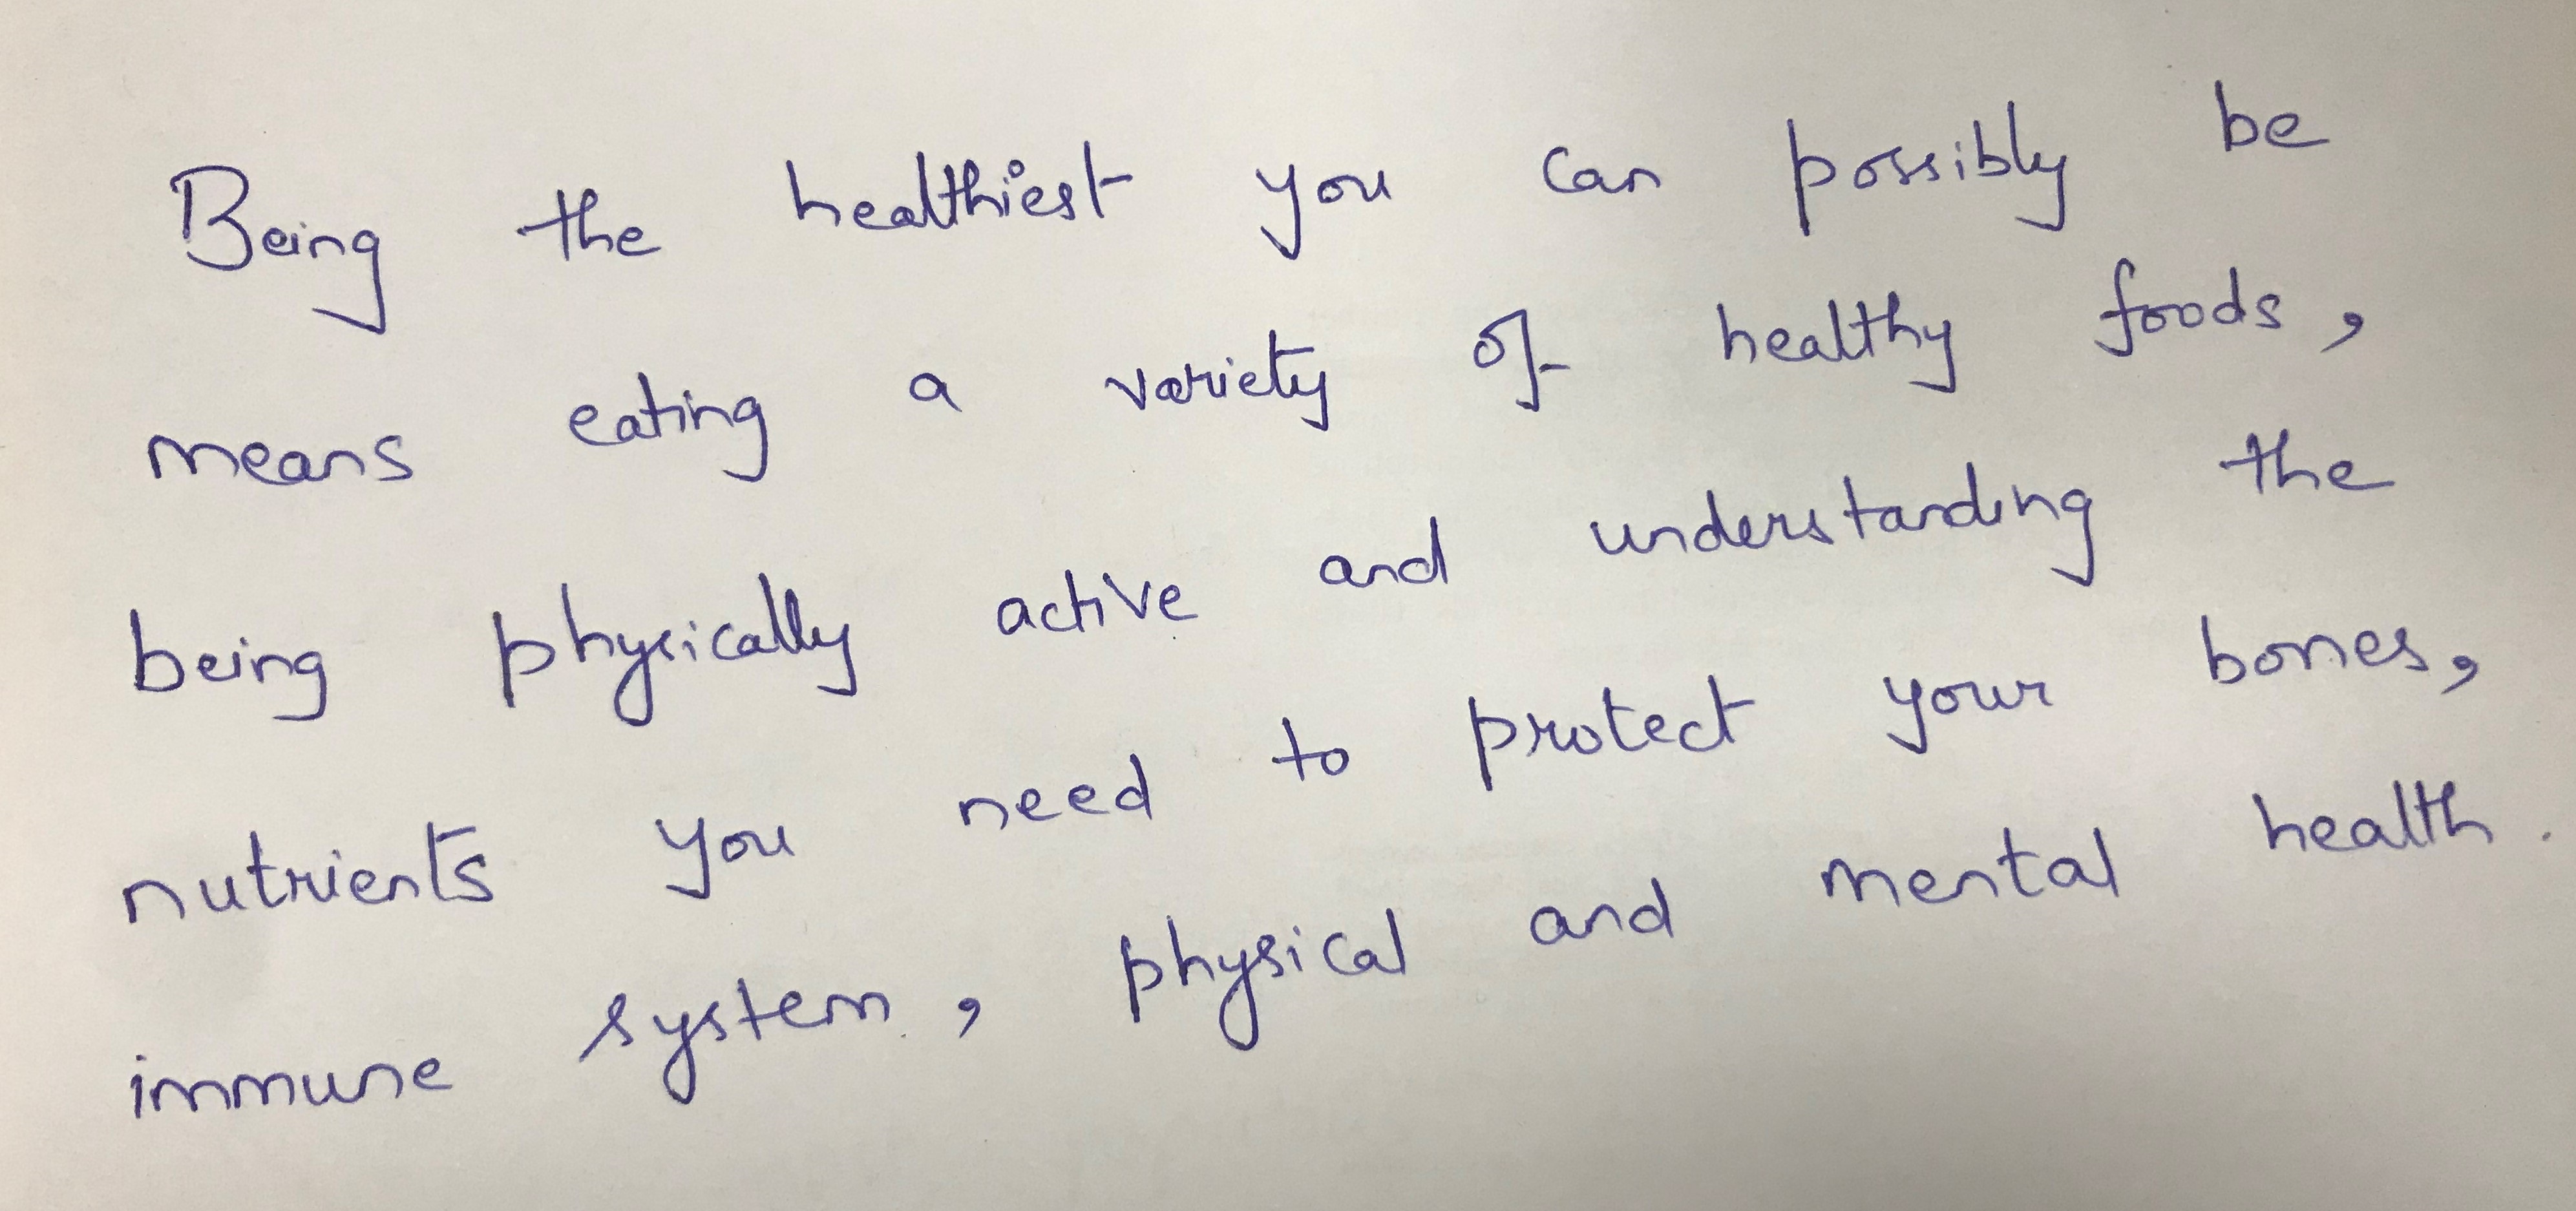 Being the healthiest you can possibly be
means eating a variety of healthy foods,
being physically active and understanding the
nutrients you need to protect your bones,
immune system, physical and mental health.